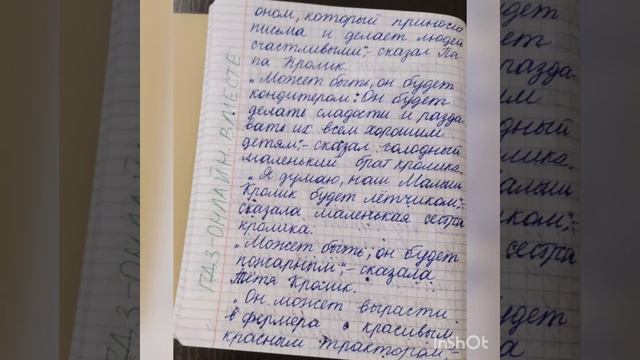 оном, который принося
письма и делает людей
счастливыми",- сказал Па
па Кролик.
„Может быть, он будет
кондитером. Он будет
делать сладости и разда
вать их всем хорошим
детям",- сказал голодный
маленький брат кролика.
„Я думаю, наш Малыш
Кролик будет лётчиком",-
сказала маленькая сестра
кролика.
„Может быть, он будет
пожарным",- сказала
Тётя Кролик.
„Он может вырасти
в фермера с красивым
красным трактором",-
ГДЗ-ОНЛАЙН ВМЕСТЕ
InShOt